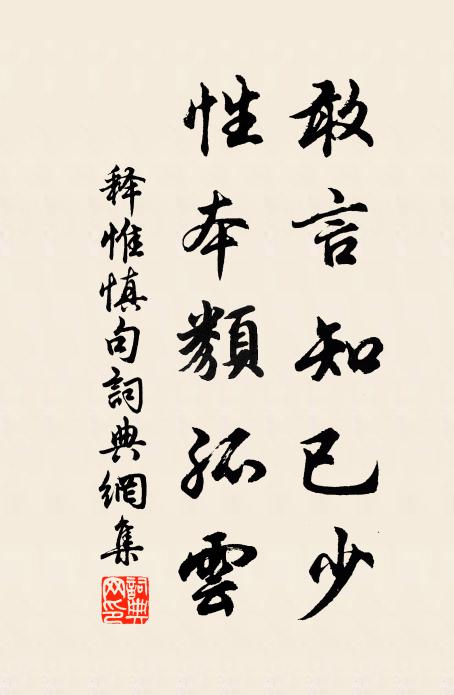 敢言知已少
性本類孤雲
释惟慎句詞典網集
詞典网印